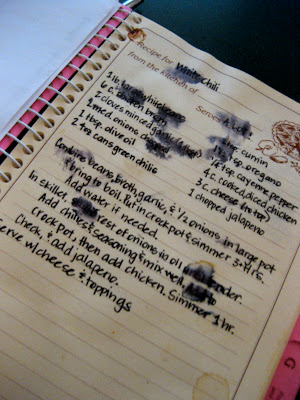 Recipe for White Chili
from the kitchen of
Serves
1 lb
6 c.
2 cloves minced garlic
2 med. onions
1 tbsp. olive oil
2 4oz cans green chilis
cumin
oregano
tsp. cayenne pepper
4 c. cooked, diced chicken
3 c. cheese (on top)
1 chopped jalapeno
Combine beans, broth, garlic, & 1/2 onions in large pot
& bring to boil. Put in crockpot & simmer 3+ Hrs.
Add water if needed.
In skillet, rest of onions in oil
Add chilies & seasoning & mix well.
Crock pot, then add chicken. Simmer 1 hr.
Check & add jalapeno.
Serve w/ cheese & toppings